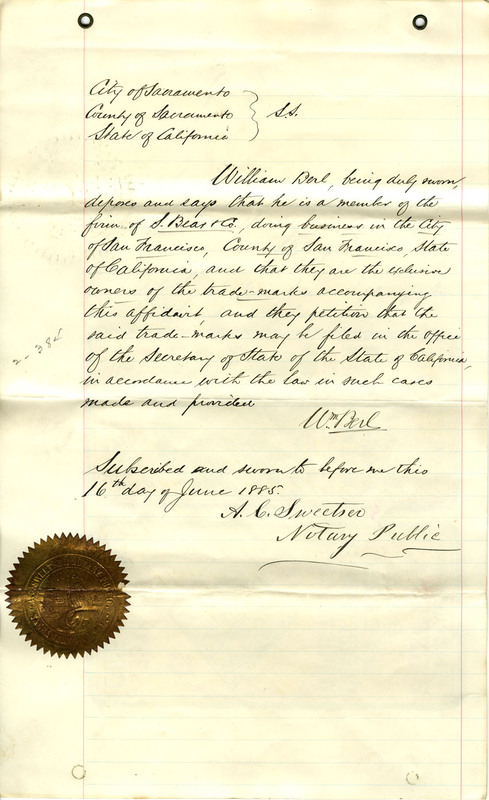 City of Sacramento
County of Sacramento } S.S.
State of California
William Berl, being duly sworn,
deposes and says that he is a member of the
firm of S. Bear & Co., doing business in the City
of San Francisco, County of San Francisco, State
of California, and that they are the exclusive
owners of the trade-marks accompanying
this affidavit, and they petition that the
said trade-marks may be filed in the office
of the Secretary of State of the State of California,
in accordance with the law in such cases
made and provided
Wm Berl
Subscribed and sworn to before me this
16th day of June 1885.
A. C. Sweetser
Notary Public
2-384